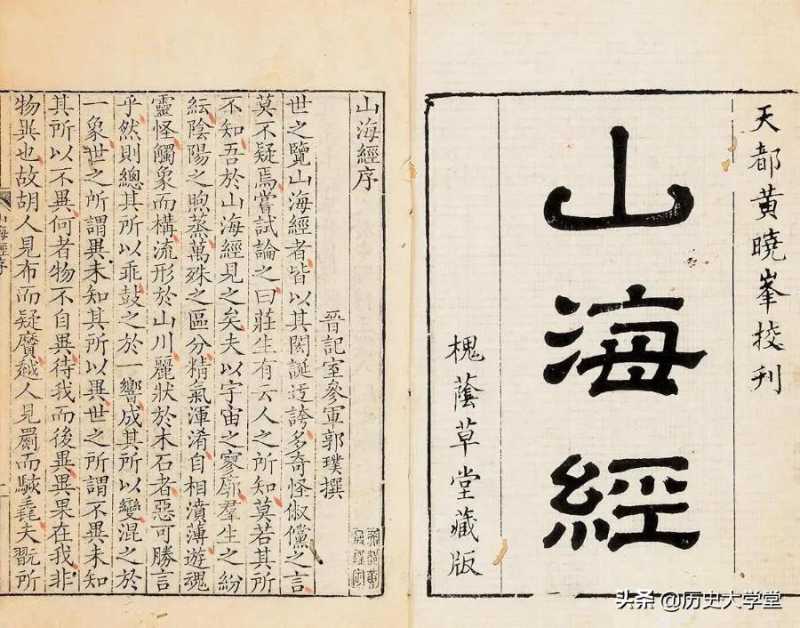 天都黃曉峯挍刊
山海經
槐蔭草堂藏版
山海經序
晉記室參軍郭璞撰
世之覽山海經者皆以其閎誕迂誇多奇怪俶儻之言
莫不疑焉嘗試論之曰莊生有云人之所知莫若其所
不知吾於山海經見之矣夫以宇宙之寥廓羣生之紛
紜陰陽之煦蒸萬殊之區分精氣渾淆自相濆薄遊魂
靈怪觸象而構流形於山川麗狀於木石者惡可勝言
乎然則總其所以乖鼓之於一響成其所以變混之於
一象世之所謂異未知其所以異世之所謂不異未知
其所以不異何者物不自異待我而後異異果在我非
物異也故胡人見布而疑黂越人見罽而駭毳夫翫所
山海經序
头条 @历史大学堂